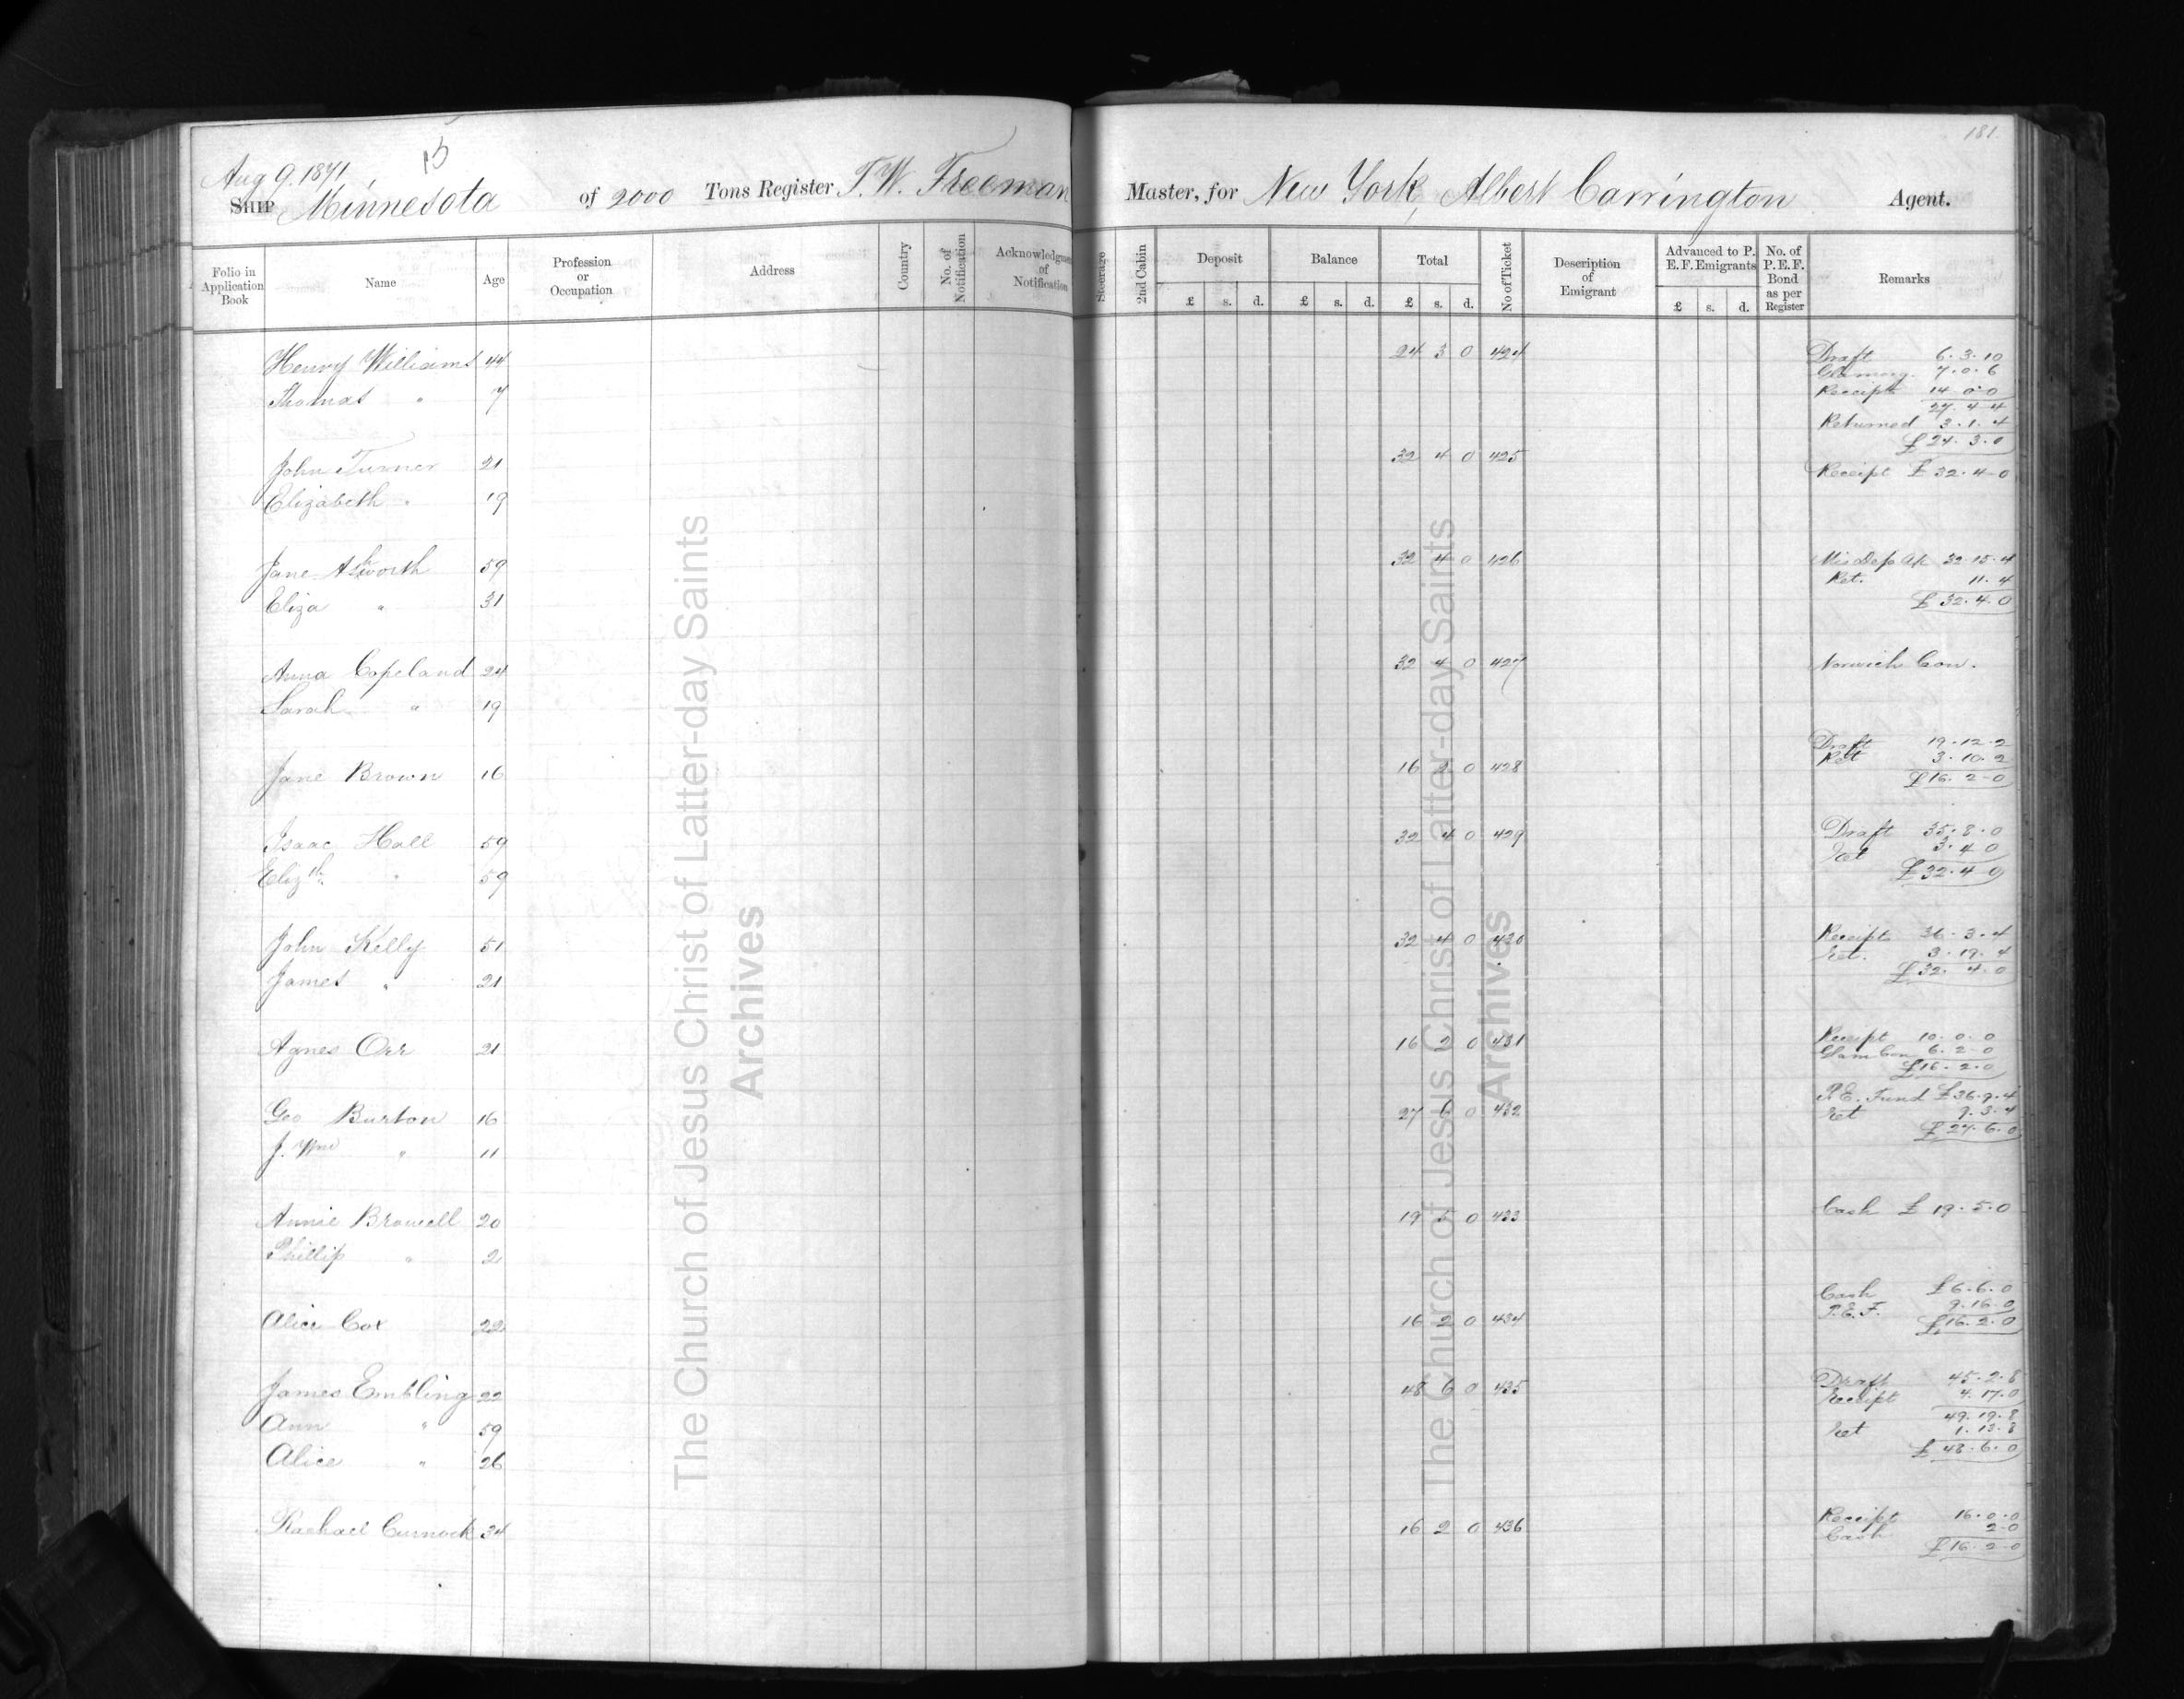 181.
15
Aug 9. 1871,
SHIP Minnesota of 2000 Tons Register T. W. Freeman Master, for New York, Albert Carrington Agent.
Folio in Application Book Name Age Profession or Occupation Address Country No. of Notification Acknowledgment of Notification Steerage 2nd Cabin Deposit £ s. d. Balance £ s. d. Total £ s. d. No of Ticket Description of Emigrant Advanced to P. E. F. Emigrants £ s. d. No. of P. E. F. Bond as per Register Remarks
Henry Williams 44 24 3 0 424 Draft 6. 3. 10
7. 0. 6
Thomas " 7 Receipt 14 0 0
27. 4. 4
Returned 3. 1. 4
£24. 3. 0
John Turner 21 32 4 0 425 Receipt £32. 4-0
Elizabeth " 19
Jane Ashworth 59 32 4 0 426 Mis Dep a/c 32. 15. 4
Ret. 11. 4
Eliza " 31 £32. 4. 0
Anna Copeland 24 32 4 0 427 Norwich Con.
Sarah " 19
Draft 19. 12. 2
Ret 3. 10. 2
Jane Brown 16 16 2 0 428 £16. 2-0
Isaac Hall 59 32 4 0 429 Draft 35. 8. 0
Ret 3. 4 0
Elizth " 59 £32. 4 0
John Kelly 51 32 4 0 430 Receipts 36. 3. 4
Ret. 3. 19. 4
James " 21 £32. 4. 0
Agnes Orr 21 16 2 0 431 Receipt 10. 0. 0
Glam Con 6. 2-0
£16. 2. 0
Geo Burton 16 27 6 0 432 P.E. Fund £36. 9. 4
Ret 9. 3. 4
J. Wm " 11 £27. 6. 0
Annie Browell 20 19 5 0 433 Cash £19. 5. 0
Phillip " 2
Cash £6. 6. 0
P.E.F. 9. 16. 0
Alice Cox 22 16 2 0 434 £16. 2. 0
James Embling 22 48 6 0 435 Draft 45. 2. 8
Receipt 4. 17. 0
49. 19. 8
Ann " 59 Ret 1. 13. 8
Alice " 26 £48. 6. 0
Rachael Curnock 34 16 2 0 436 Receipt 16. 0. 0
Cash 2-0
£16. 2-0
The Church of Jesus Christ of Latter-day Saints
Archives
The Church of Jesus Christ of Latter-day Saints
Archives